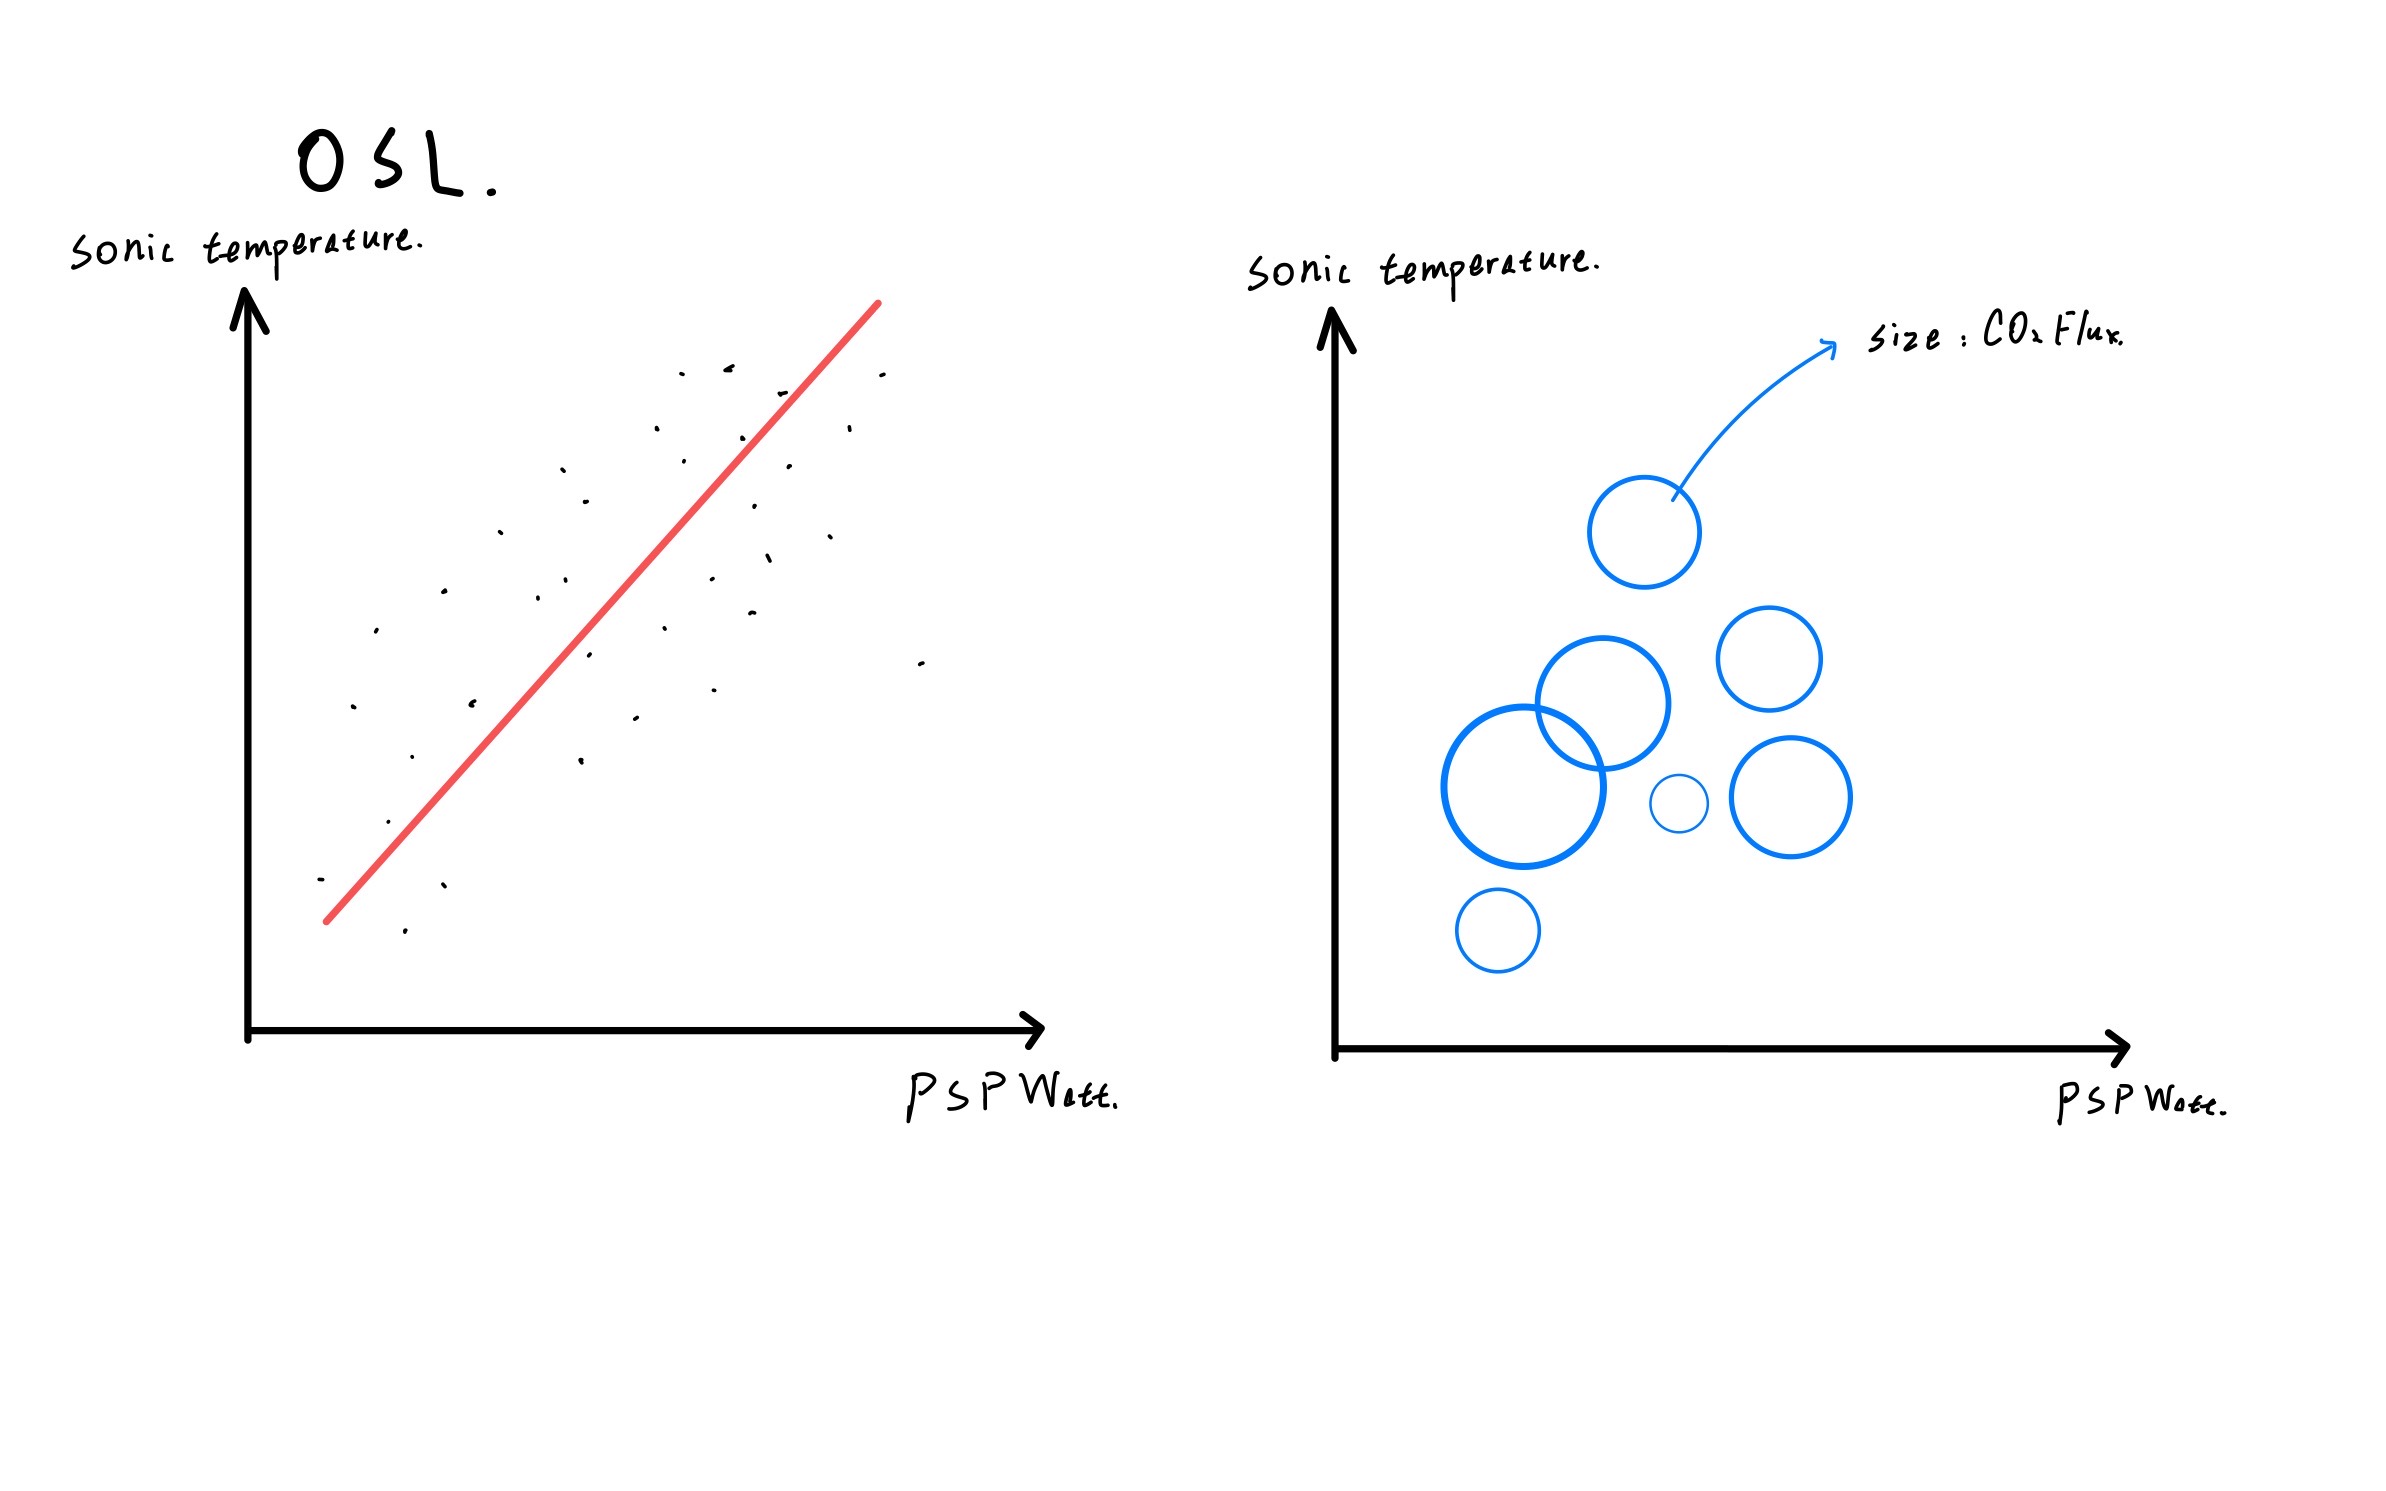 OSL.
Sonic temperature.
PSP Watt.
Sonic temperature.
size : CO2 Flux.
PSP Watt.